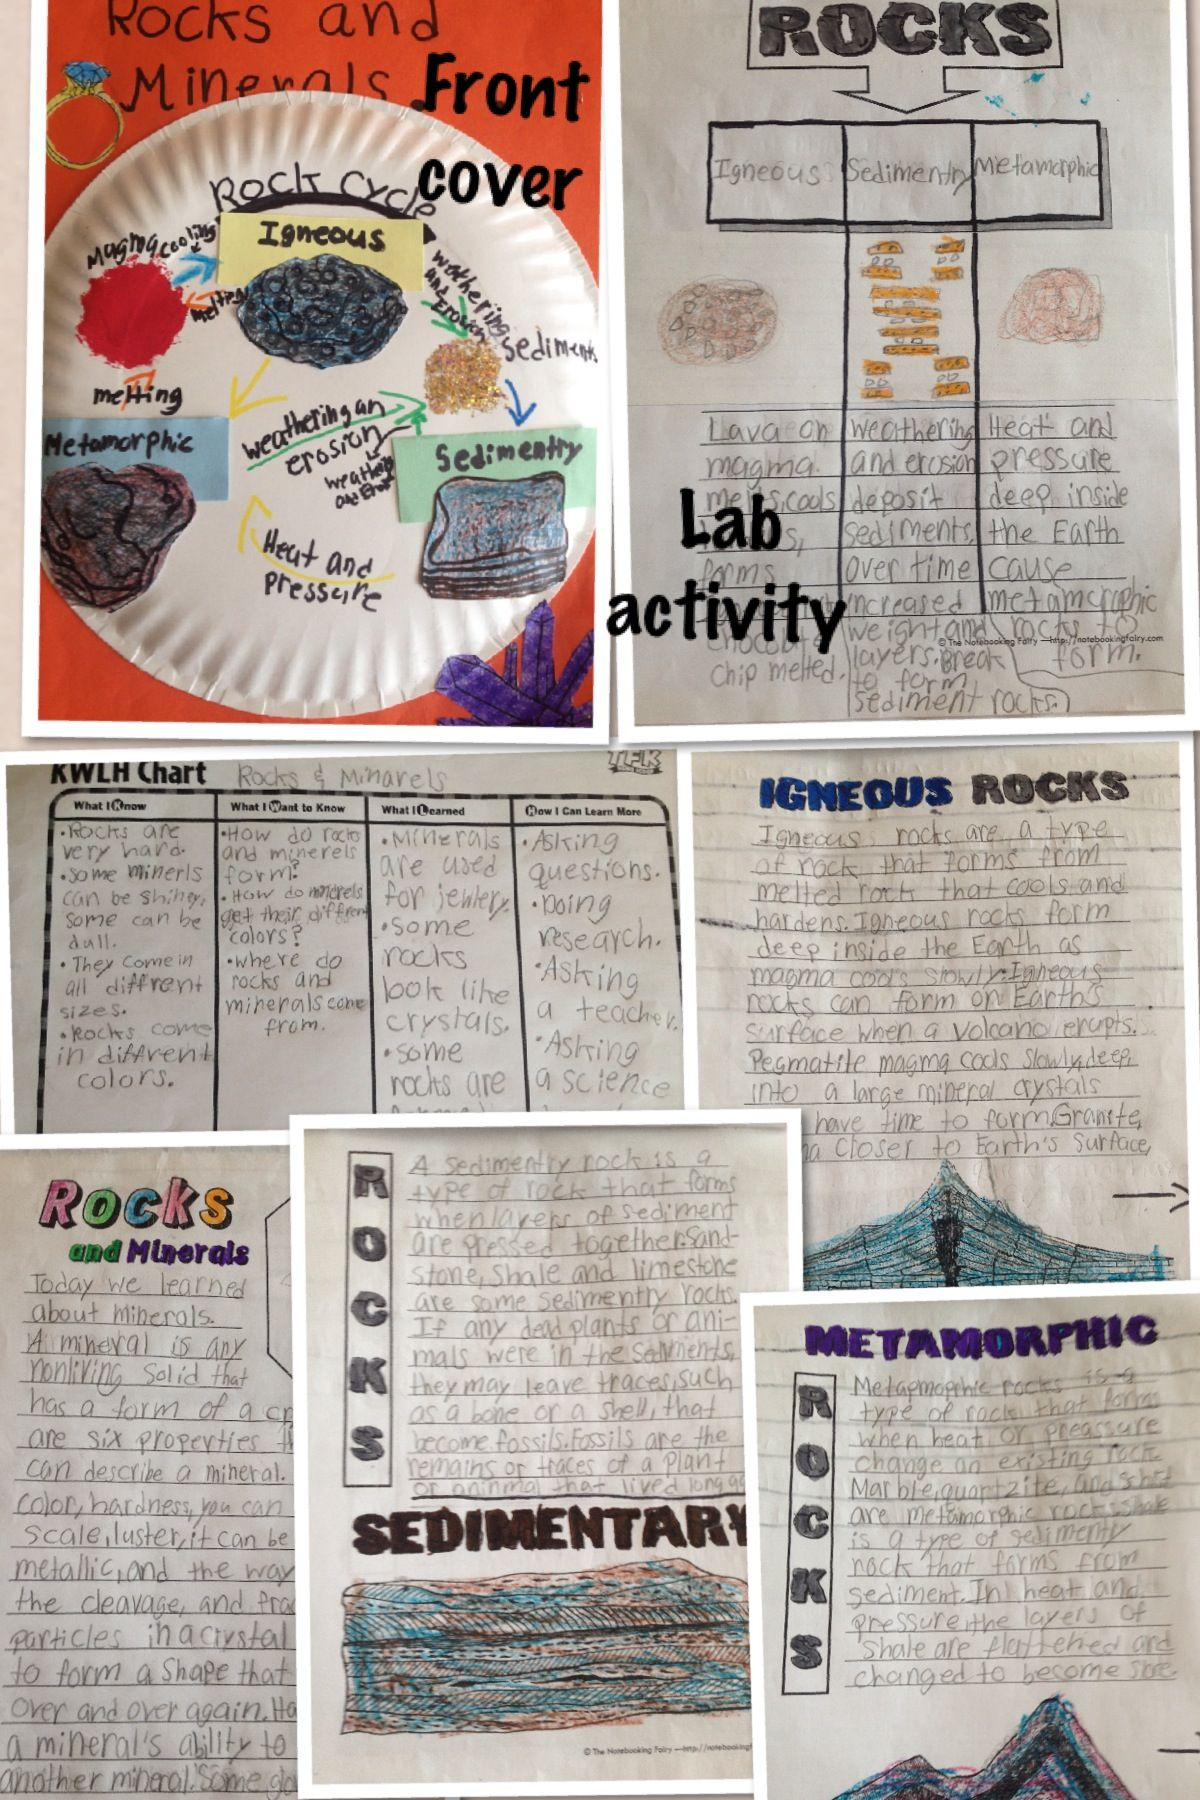 Rocks and
Minerals
Front
cover
Rock Cycle
Igneous
Magma
cooling
melting
weathering
and
Erosion
Sediments
melting
Metamorphic
weathering an
erosion
weathering
and
Sedimentry
Heat and
pressure
ROCKS
Igneous
Sedimentry
Metamorphic
Lava or
magma.
cools
forms
chip melted.
weathering
and erosion
deposit
sediments,
over time
increased
weight and
layers. Break
to form
sediment rocks.
Heat and
pressure
deep inside
the Earth
cause
metamcrophic
rocks to
form.
© The Notebooking Fairy —http://notebookingfairy.com
Lab
activity
KWLH Chart Rocks & Minarels
TFK
What I Know
•Rocks are
very hard.
•some minerls
can be shiney,
some can be
dull.
•They come in
all diffrent
sizes.
•Rocks come
in diffrent
colors.
What I Want to Know
•How do rocks
and minerels
form?
•How do minerels
get their different
colors?
•where do
rocks and
minerals come
from.
What I Learned
•Minerals
are used
for jewlery.
•some
rocks
look like
crystals.
•some
rocks are
How I Can Learn More
•Asking
questions.
•Doing
research.
•Asking
a teacher.
•Asking
a science
IGNEOUS ROCKS
Igneous rocks are a type
of rock that forms from
melted rock that cools and
hardens. Igneous rocks form
deep inside the Earth as
magma cools slowly. Igneous
rocks can form on Earth's
surface when a volcano erupts.
Pegmatite magma cools slowly, deep
into a large mineral crystals
have time to form. Granite,
closer to Earth's surface,
Rocks
and Minerals
Today we learned
about minerals.
A mineral is any
nonliving solid that
has a form of a
are six properties
can describe a mineral.
color, hardness, you can
scale, luster, it can be
metallic, and the way
the cleavage, and
particles in a crystal
to form a shape that
over and over again.
a mineral's ability to
another mineral. Some
ROCKS
A sedimentry rock is a
type of rock that forms
when layers of sediment
are pressed together. Sand-
stone, shale and limestone
are some sedimentry rocks.
If any dead plants or ani-
mals were in the sediments,
they may leave traces, such
as a bone or a shell, that
become fossils. Fossils are the
remains or traces of a plant
or aninmal that lived long
SEDIMENTARY
© The Notebooking Fairy —http://notebookingf
METAMORPHIC
ROCKS
rocks is a
type of rock that forms
when heat or preassure
change an existing rock.
Marble, quartzite, and
are metamorphic rocks. Shale
is a type of sedimenty
rock that forms from
sediment. In heat and
pressure, the layers of
Shale are flattened and
changed to become